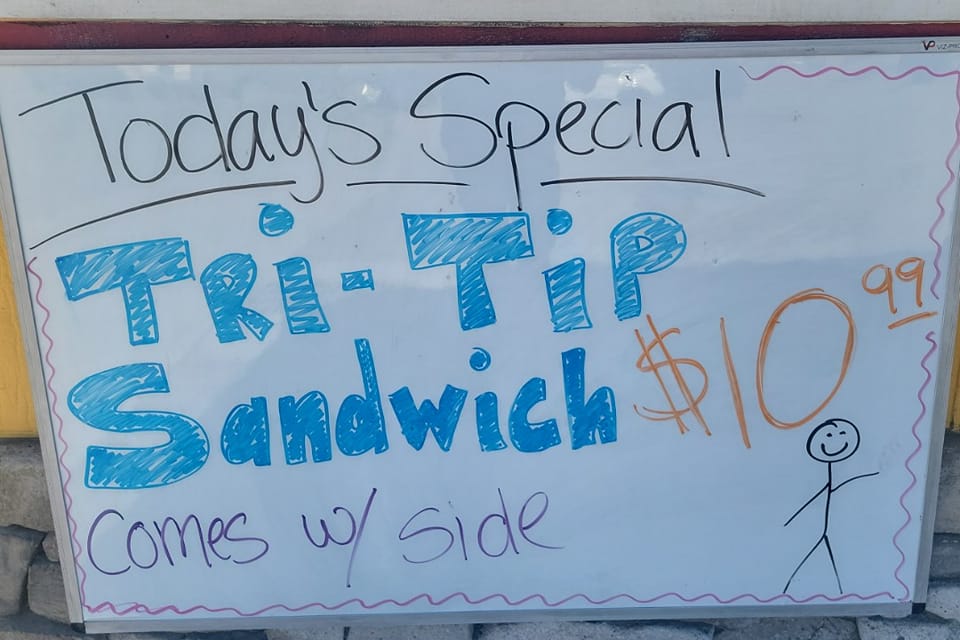 Today's Special
Tri-Tip $10.99
Sandwich
Comes w/ side
VP VIZ-PRO